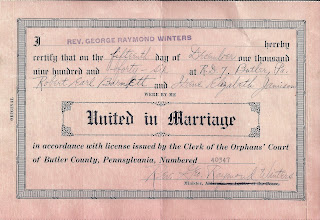 REV. GEORGE RAYMOND WINTERS
I hereby
certify that on the fifteenth day of December one thousand
nine hundred and at R.D.7, Butler, Pa.
Robert Karl and Elizabeth
WERE BY ME
United in Marriage
in accordance with license issued by the Clerk of the Orphans' Court
of Butler County, Pennsylvania, Numbered 40547
Rev. Geo. Raymond Winters
Minister,
ORIGINAL